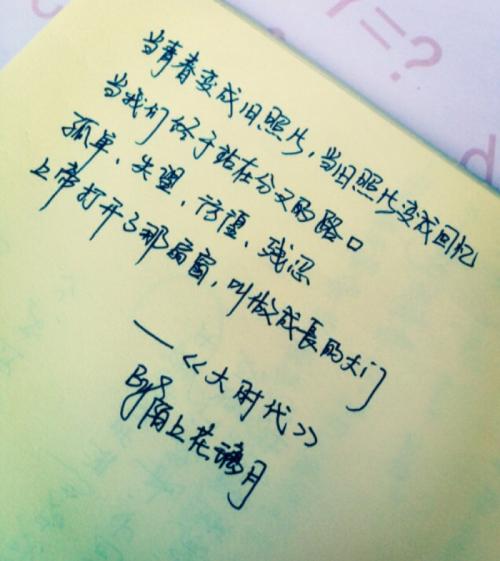 当青春变成旧照片，当旧照片变成回忆
当我们终于站在分叉的路口
孤单，失望，彷徨，残忍
上帝打开了那扇窗，叫做成长的大门
——《大时代》
By 陌上花 月
Y=?